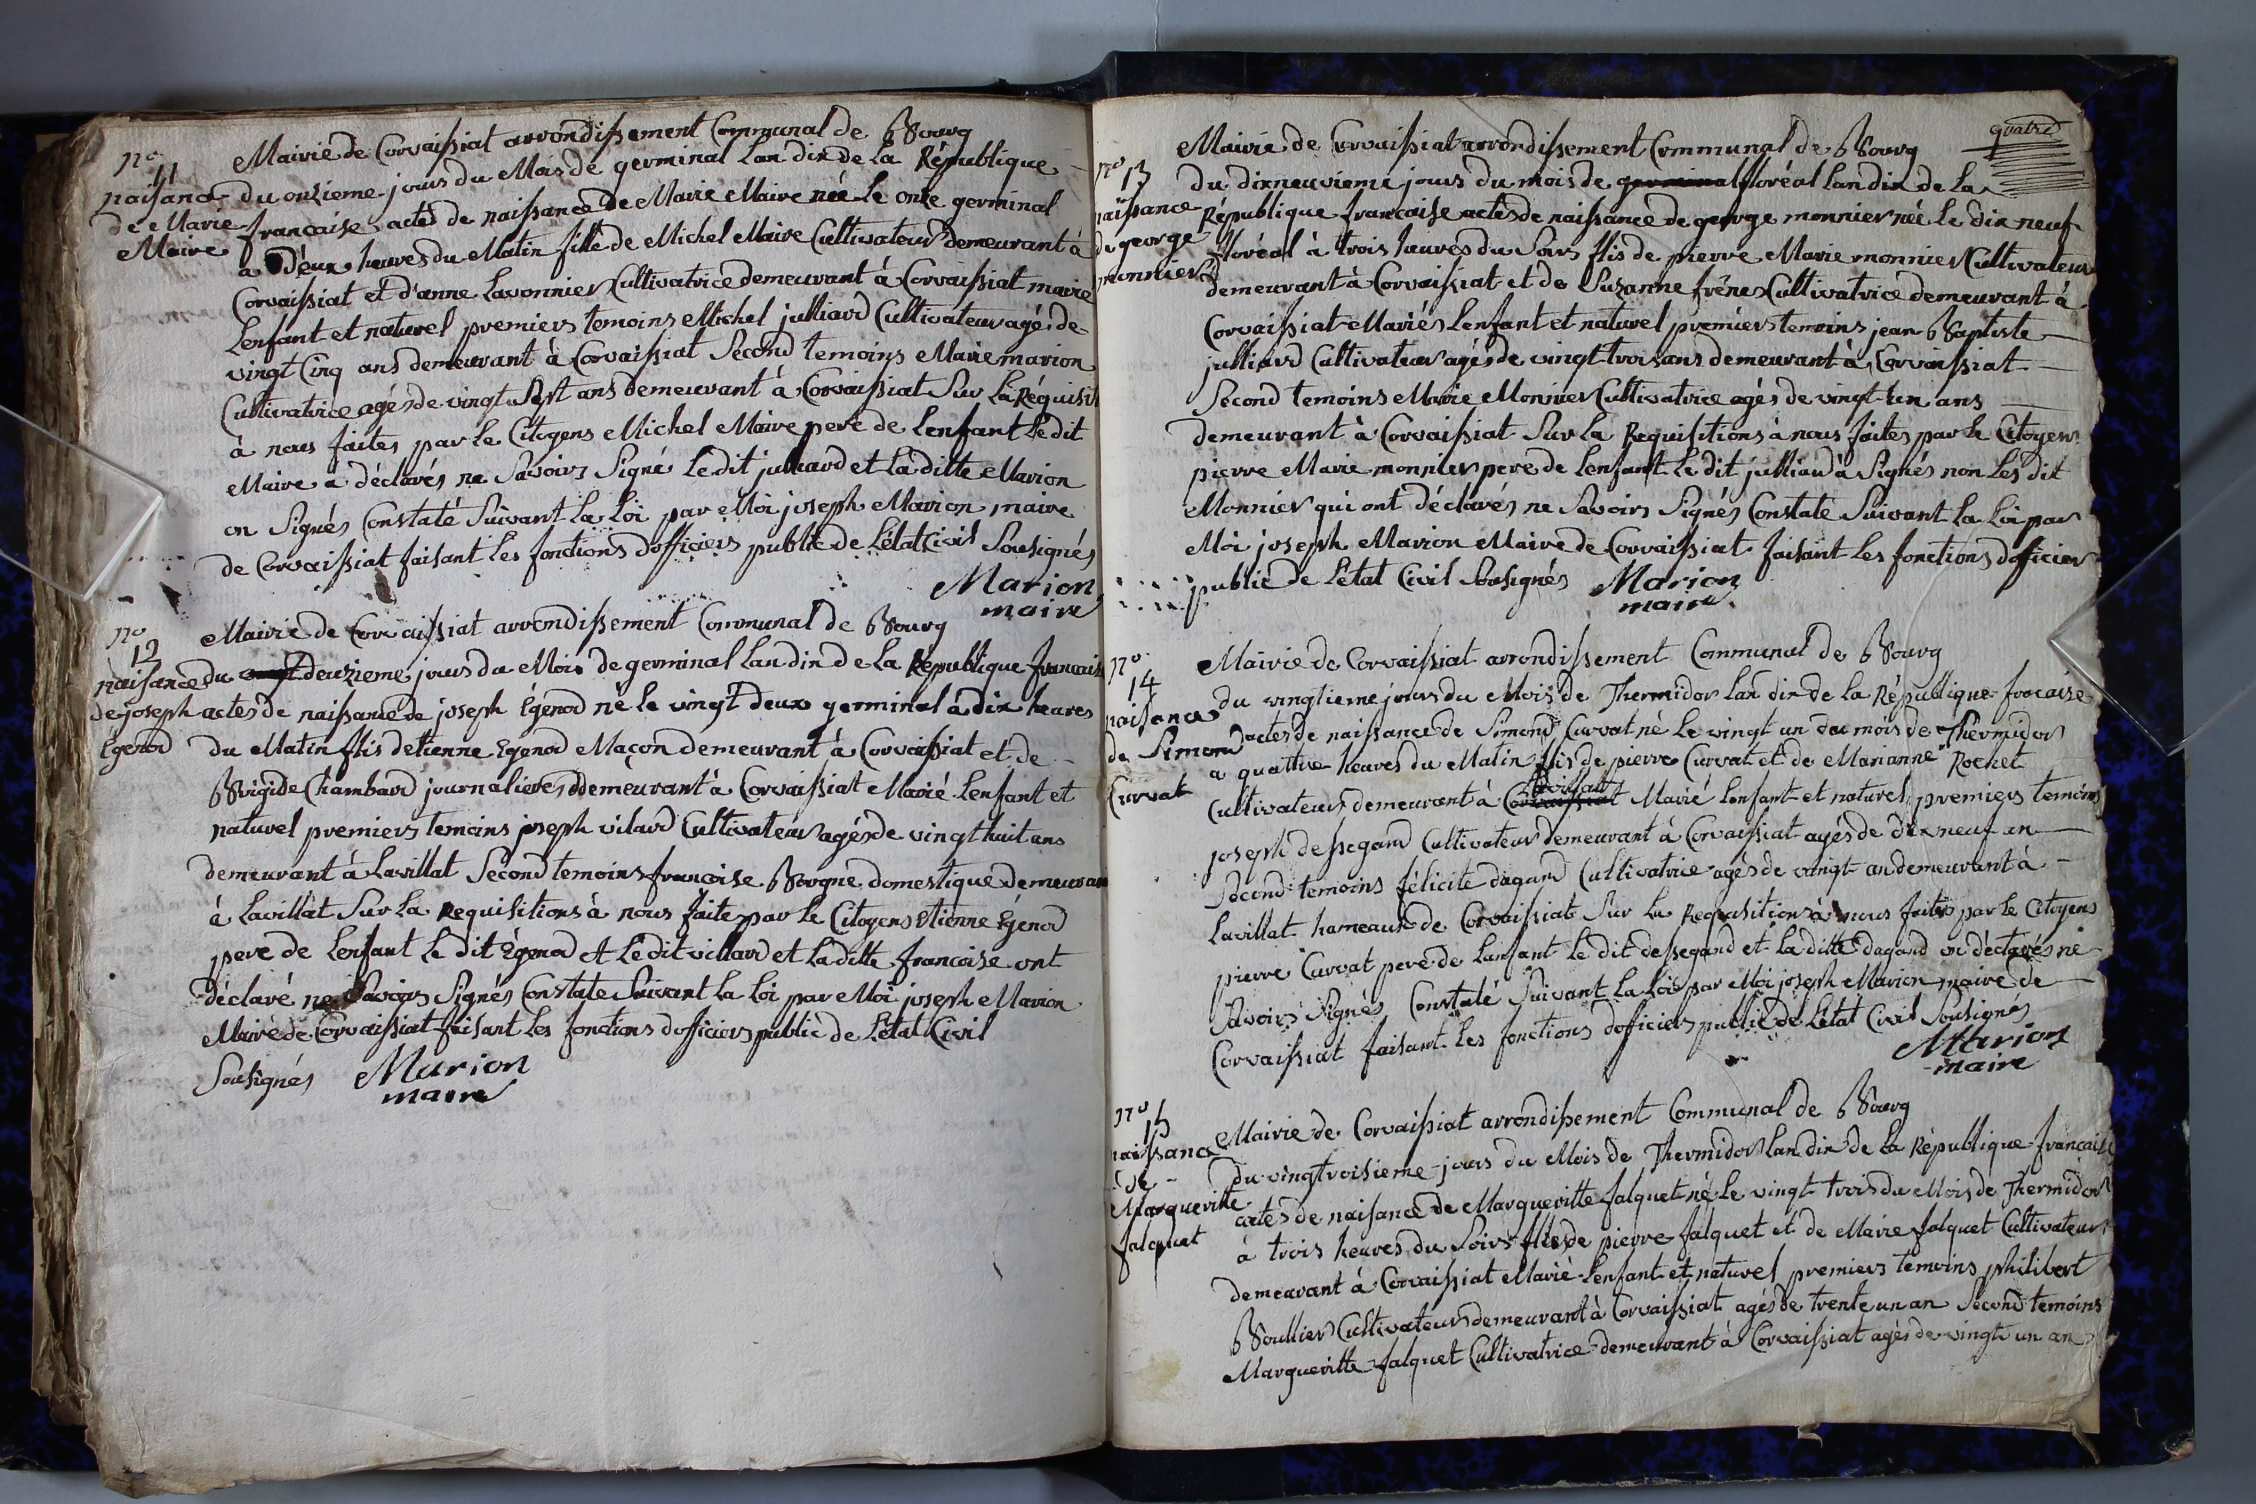 Mairie de Corvaissiat arrondissement Communal de Bourg
n° 11
naissance de Marie Maire
du onzieme jours du Mois de germinal Lan dix de La République
francaise actes de naissance de Marie Maire née Le onze germinal
a Deux heures du Matin fille de Michel Maire Cultivateur demeurant à
Corvaissiat et d'anne Lavonnier Cultivatrice demeurant à Corvaissiat marié
Lenfant et naturel premiers temoins Michel julliard Cultivateur agé de
vingt Cinq ans demeurant à Corvaissiat Second temoins Marie marion
Cultivatrice agés de vingt Sept ans demeurant à Corvaissiat Sur La Réquisiti
à nous faites par Le Citoyens Michel Maire pere de Lenfant Le dit
Maire à déclarés ne Savoirs Signé Le dit julliard et La ditte Marion
on Signés Constaté Suivant La Loi par Moi joseph Marion maire
de Corvaissiat faisant Les fonctions dofficiers public de Létat Civil Sousignés
Marion
maire
n° 12
naisance de joseph Égenod
Mairie de Corvaissiat arrondissement Communal de Bourg
du vingt deuzieme jours du Mois de germinal Lan dix de La République francais
actes de naissance de joseph Égenod né le vingt deux germinal à dix heures
du Matin flis detienne Egenod Maçon demeurant à Corvaissiat et de
Brigide Chambard journalieres ddemeurant à Corvaissiat Marié Lenfant et
naturel premiers temoins joseph vilard Cultivateur agés de vingt huit ans
demeurant à Lavillat Second temoins francoise Borgne domestique demeuran
à Lavillat Sur La Requisitions à nous faites par Le Citoyens Etienne Égenod
pere de Lenfant Le dit Égenod et Le dit villard et La ditte francoise ont
déclaré ne Savoirs Signés Constate Suivant La Loi par Moi joseph Marion
Maire de Corvaissiat faisant Les fonctions dofficiers public de Létat Civil
Sousignés Marion
maire
quatre
n° 13
naissance de george monnier
Mairie de Corvaissiat arrondissement Communal de Bourg
du dixneuvieme jours du mois de germinal floréal Lan dix de La
République francaise actes de naissance de george monnier née Le dix neuf
floréal à trois heures du Soirs flis de pierre Marie monnier Cultivateur
demeurant à Corvaissiat et de Suzanne frénes Cultivatrice demeurant à
Corvaissiat Mariés Lenfant et naturel premiers temoins jean Baptiste
julliard Cultivateur agés de vingt trois ans demeurant à Corvaissiat
Second temoins Marie Monnier Cultivatrice agés de vingt un ans
demeurant à Corvaissiat Sur La Requisitions à nous faites par Le Citoyen
pierre Marie monnier pere de Lenfant Le dit julliard à Signés non Les dit
Monnier qui ont déclarés ne Savoirs Signés Constate Suivant La Loi par
Moi joseph Marion Maire de Corvaissiat faisant Les fonctions dofficier
public de Létat Civil Sousignés Marion
maire
n° 14
naisance de Simond Curvat
Mairie de Corvaissiat arrondissement Communal de Bourg
du vingtieme jours du Mois de Thermidor Lan dix de la République francaise
actes de naissance de Simond Curvat né Le vingt un du mois de Thermidor
a quattre heures du Matin flis de pierre Curvat et de Marianne Rochet
Lavillat
Cultivateurs demeurant à Corvaissiat Marié Lenfant et naturel premiers temoins
joseph dessegard Cultivateur demeurant à Corvaissiat agés de dix neuf an
Second temoins félicité dagand Cultivatrice agés de vingt an demeurant à
Lavillat hameaux de Corvaissiat Sur La Requisitions à nous faites par Le Citoyens
pierre Curvat pere de Lanfant Le dit dessegand et La ditte dagand on déclarés ne
Savoirs Signés Constaté Suivant La Loi par Moi joseph Marion maire de
Corvaissiat faisant Les fonctions dofficiers public de Létat Civil Sousignés
Marion
maire
n° 15
naissance de Margueritte falquet
Mairie de Corvaissiat arrondissement Communal de Bourg
du vingtroisieme jours du Mois de Thermidor Lan dix de La République francaise
actes de naisance de Margueritte falquet né Le vingt trois du Mois de Thermidor
à trois heures du Soirs flis de pierre falquet et de Marie falquet Cultivateurs
demeurant à Corvaissiat Marié Lenfant et naturel premiers temoins philibert
Boullier Cultivateur demeurant à Corvaissiat agés de trente un an Second temoins
Margueritte falquet Cultivatrice demeurant à Corvaissiat agés de vingt un an